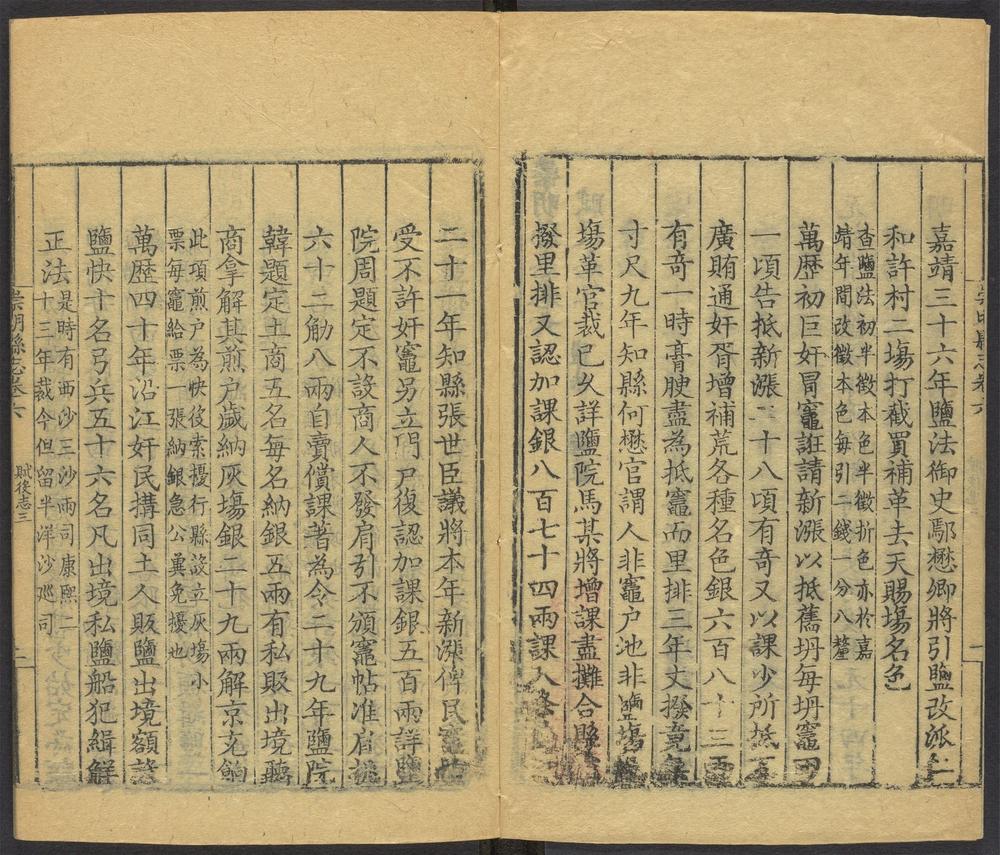 嘉靖三十六年鹽法御史鄢懋卿將引鹽改派上
和許村二場打截買補革去天賜場名色
查鹽法初半徵本色半徵折色亦於嘉
靖年間改徵本色每引二錢一分八釐
萬歷初巨奸冒竈誑請新漲以抵舊坍每坍竈田
一頃告抵新漲二十八頃有奇又以課少所抵
廣賄通奸胥增補荒各種名色銀六百八十三両
有奇一時膏腴盡為抵竈而里排三年丈撥竟
寸尺九年知縣何懋官謂人非竈户池非鹽塲
塲革官裁已久詳鹽院馬某將增課盡攤合縣
撥里排又認加課銀八百七十四兩課入
二十一年知縣張世臣議將本年新漲俾民竈
受不許奸竈另立門戸復認加課銀五百兩詳鹽
院周題定不設商人不發肩引不頒竈帖准肩挑
六十二觔八兩自賣償課著為令二十九年鹽院
韓題定土商五名每名納銀五兩有私販出境聽
商拿解其煎戸歲納灰塲銀二十九兩解京充餉
此項煎户為快役索擾行縣設立灰塲小
票每竈給票一張納銀急公冀免擾也
萬歷四十年沿江奸民搆同土人販鹽出境額設
鹽快十名弓兵五十六名凡出境私鹽船犯緝解
正法
是時有西沙三沙兩司康熙二
十三年裁今但留半洋沙巡司
崇明縣志卷六
賦役志三
二